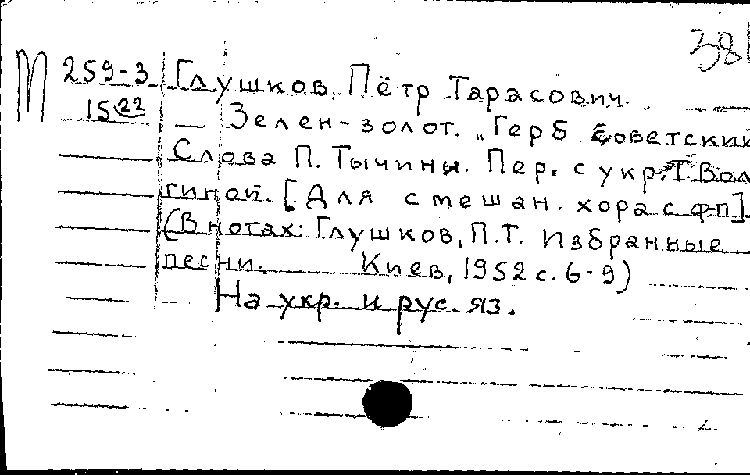 38
М 259-3 Глушков, Пётр Тарасович.
15 22 Зелен-золот. „Герб советский
Слова П. Тычины. Пер. с укр. Т. Вол
гиной. [Для смешан. хора с ф-п].
(В нотах: Глушков, П.Т. Избранные
песни. Киев, 1952 с. 6-9)
На укр. и рус. яз.